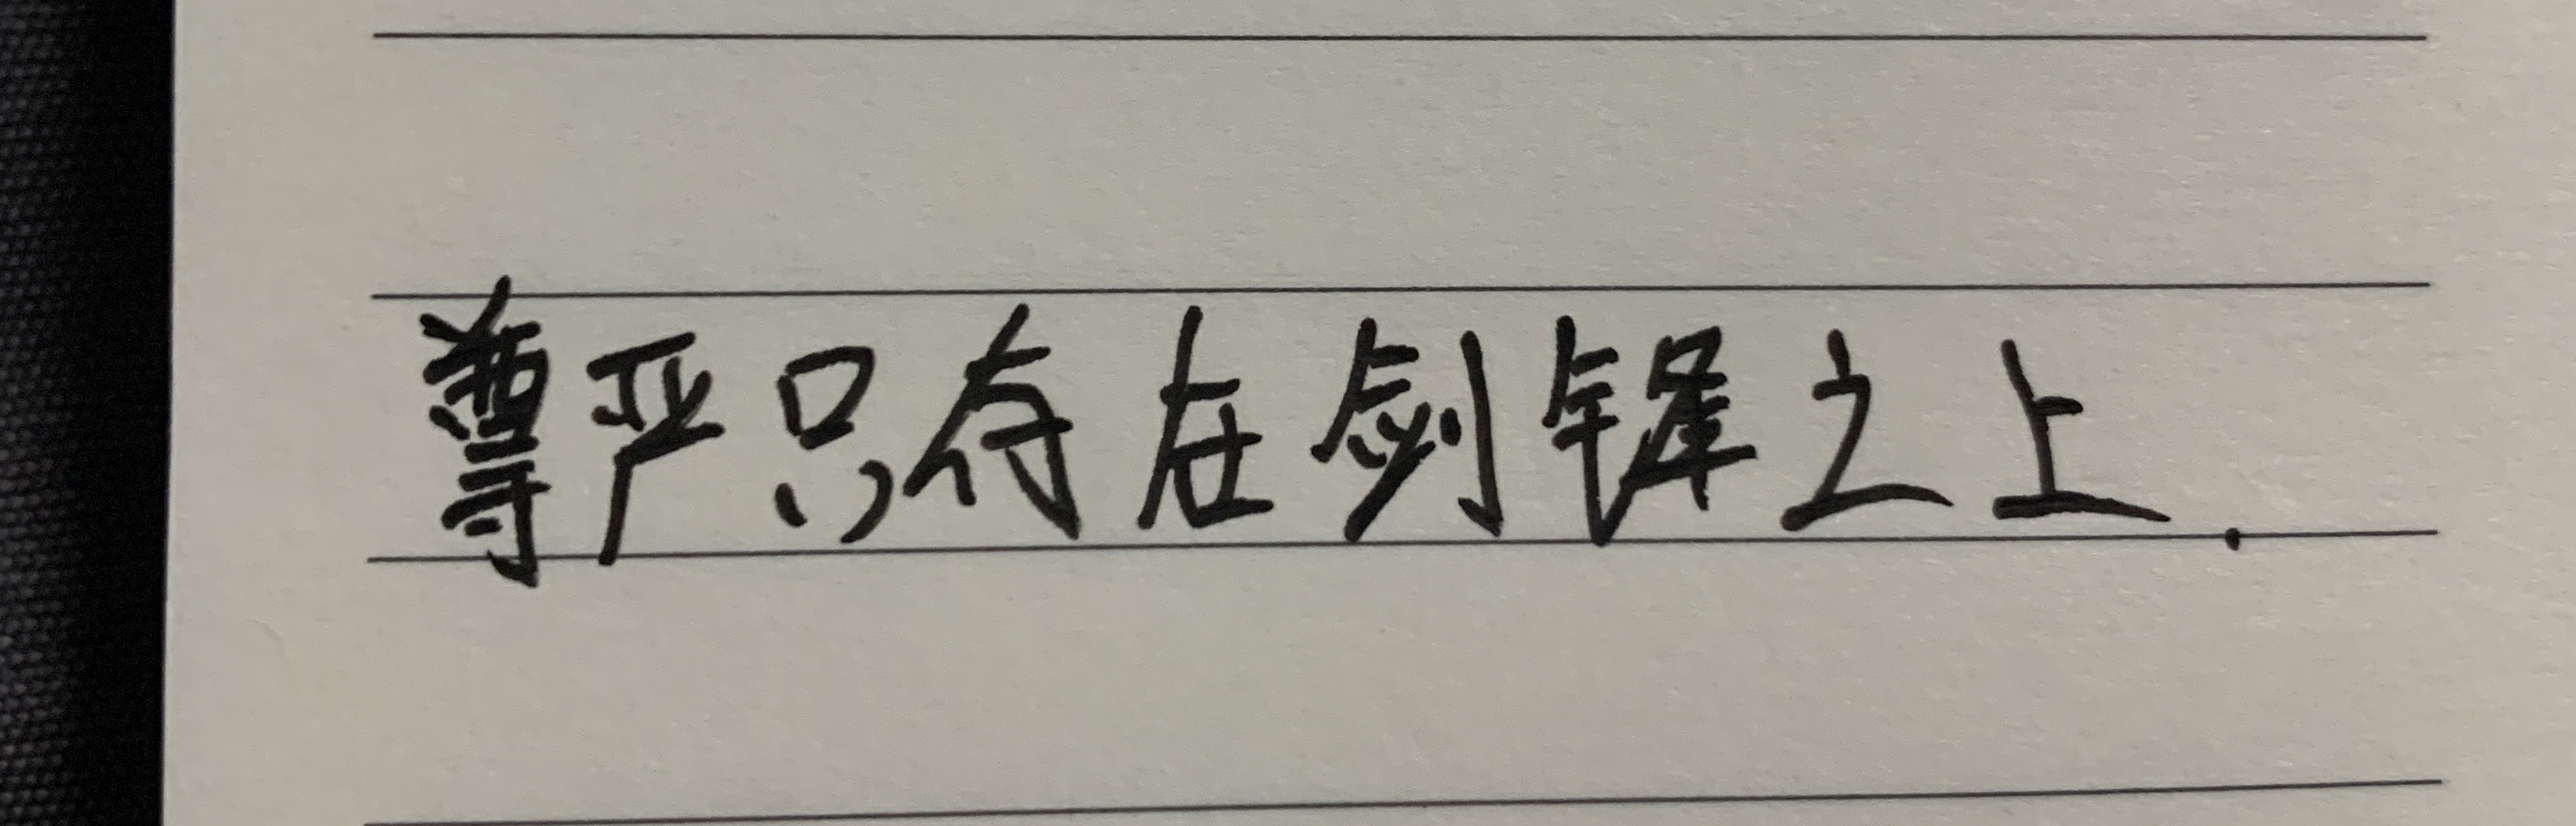 尊严只存在剑锋之上.